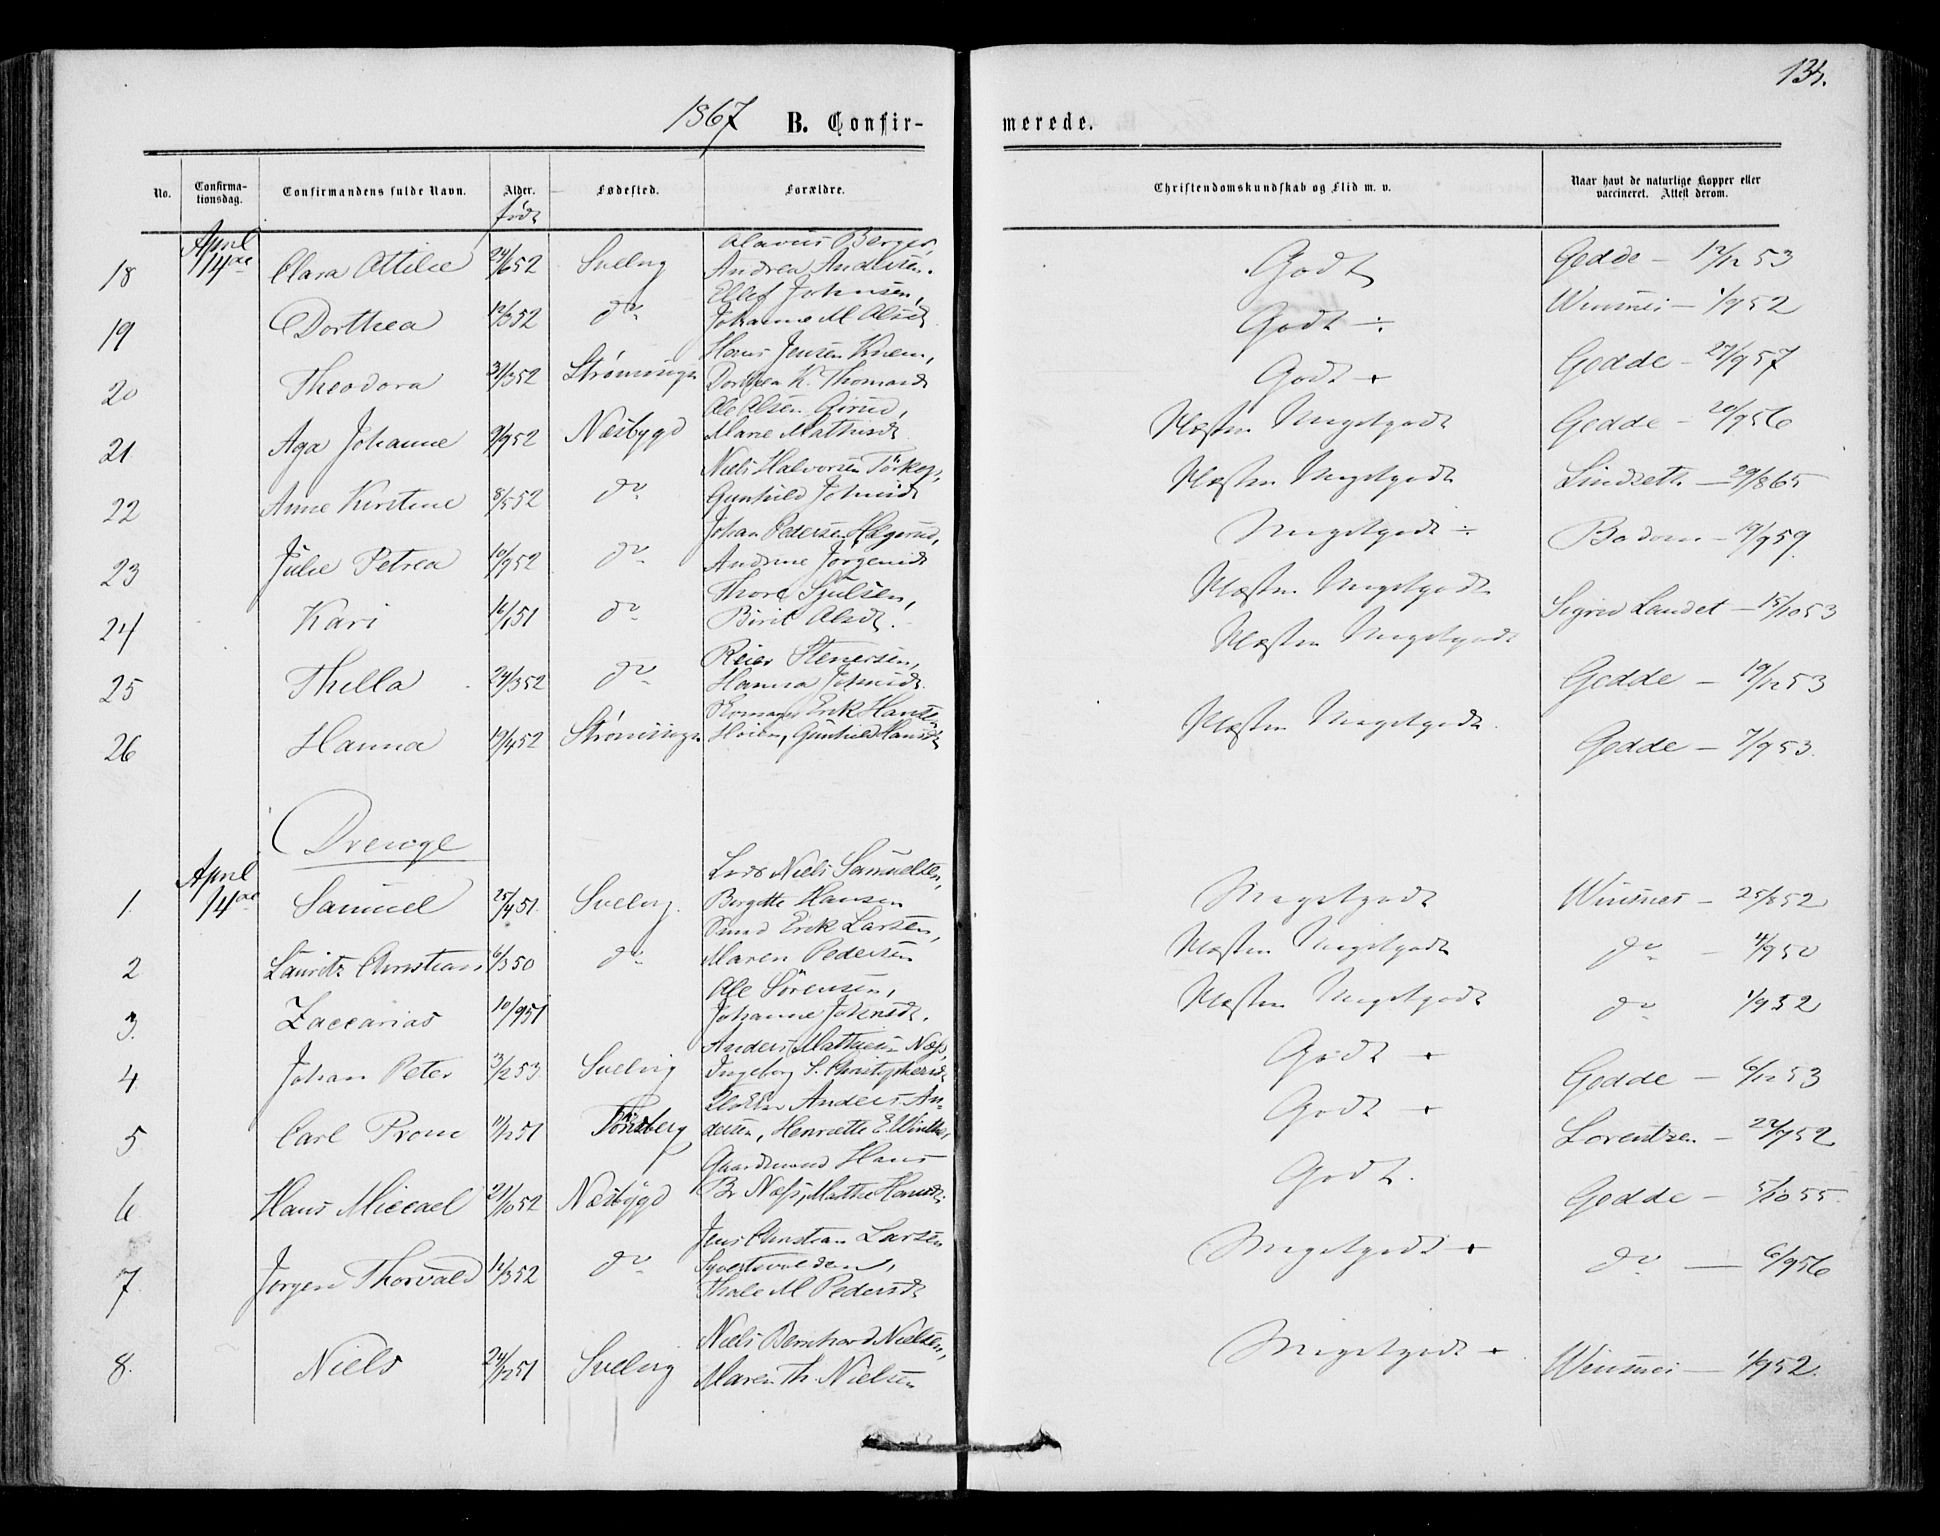 135.
1867 B. Confir- merede.
No. Confirma-tionsdag. Confirmandens fulde Navn. Alder. født Fødested. Forældre. Christendomskundskab og Flid m. v. Naar havt de naturlige Kopper eller vaccineret. Attest derom.
April 14de
18 Clara Attilie 24/6 52 Svelvig Olavus Berger, Andrea Andersen. Godt Gedde – 12/12 53
19 Dorthea 12/3 52 do Ellef Johnsen, Johanne M Olsdt Godt ÷ Winsnes – 1/9 52
20 Theodora 31/3 52 Strømssogn Hans Jensen Knem, Dorthea K. Thomasdt Godt + Gedde – 27/9 57
21 Aga Johanne 9/9 52 Nesbygd Ole Olsen Girud, Marie Mathisdt Næsten Megetgodt Gedde – 20/9 56
22 Anne Kirstine 8/5 52 do Niels Halvorsen Gunhild Johnsdt Næsten Megetgodt Lindseth – 29/8 65
23 Julie Petrea 10/9 52 do Johan Pedersen Hægerud, Andrine Jørgensdt Megetgodt ÷ Bodom – 19/9 59
24 Kari 16/1 51 do Thore Sjulsen, Birit Olsdt. Næsten Megetgodt Sigrid Landet – 15/10 53
25 Thella 24/3 52 do Reier Stenersen, Hanna Johnsdt. Næsten Megetgodt Gedde – 19/12 53
26 Hanna 19/4 52 Strømssogn Erik Hansen Hvien, Gunhild Hansdt Næsten Megetgodt. Gedde – 7/9 53.
Drenge
April 14de
1. Samuel 25/4 51. Svelvig. Niels Samuelsen, Birgitte Hansen Megetgodt Winsnes – 25/8 52
2 Lauritz Christian 6/3 50 do Smed Erik Larsen, Maren Pedersen Næsten Megetgodt do – 4/9 50
3. Zaccarias 10/9 51 Ole Sörensen, Johanne Johnsdt. Næsten Megetgodt do 1/9 52
4. Johan Peter 3/2 53 Svelvig Anders Mathisen Næss, Ingeborg S. Christophersdt Godt + Gedde – 6/12 53
5. Carl Prom 11/12 51 Tönsberg Anders Andersen, Henriette E. Winther, Godt + Lorentzen – 22/7 52
6. Hans Miccael 21/10 52 Nesbygd Gaardmand Hans Br Næss, Mathe Hansdt. Godt. Gedde – 5/10 55
7. Jörgen Thorvald 12/3 52 do Jens Christian Larsen Syvertsvolden, Thale M Pedersdt Megetgodt + do – 6/9 56
8. Niels 24/12 51 Svelvig Niels Bernhard Nielsen, Maren Th. Nielsen Megetgodt + Winsnes – 1/9 52.